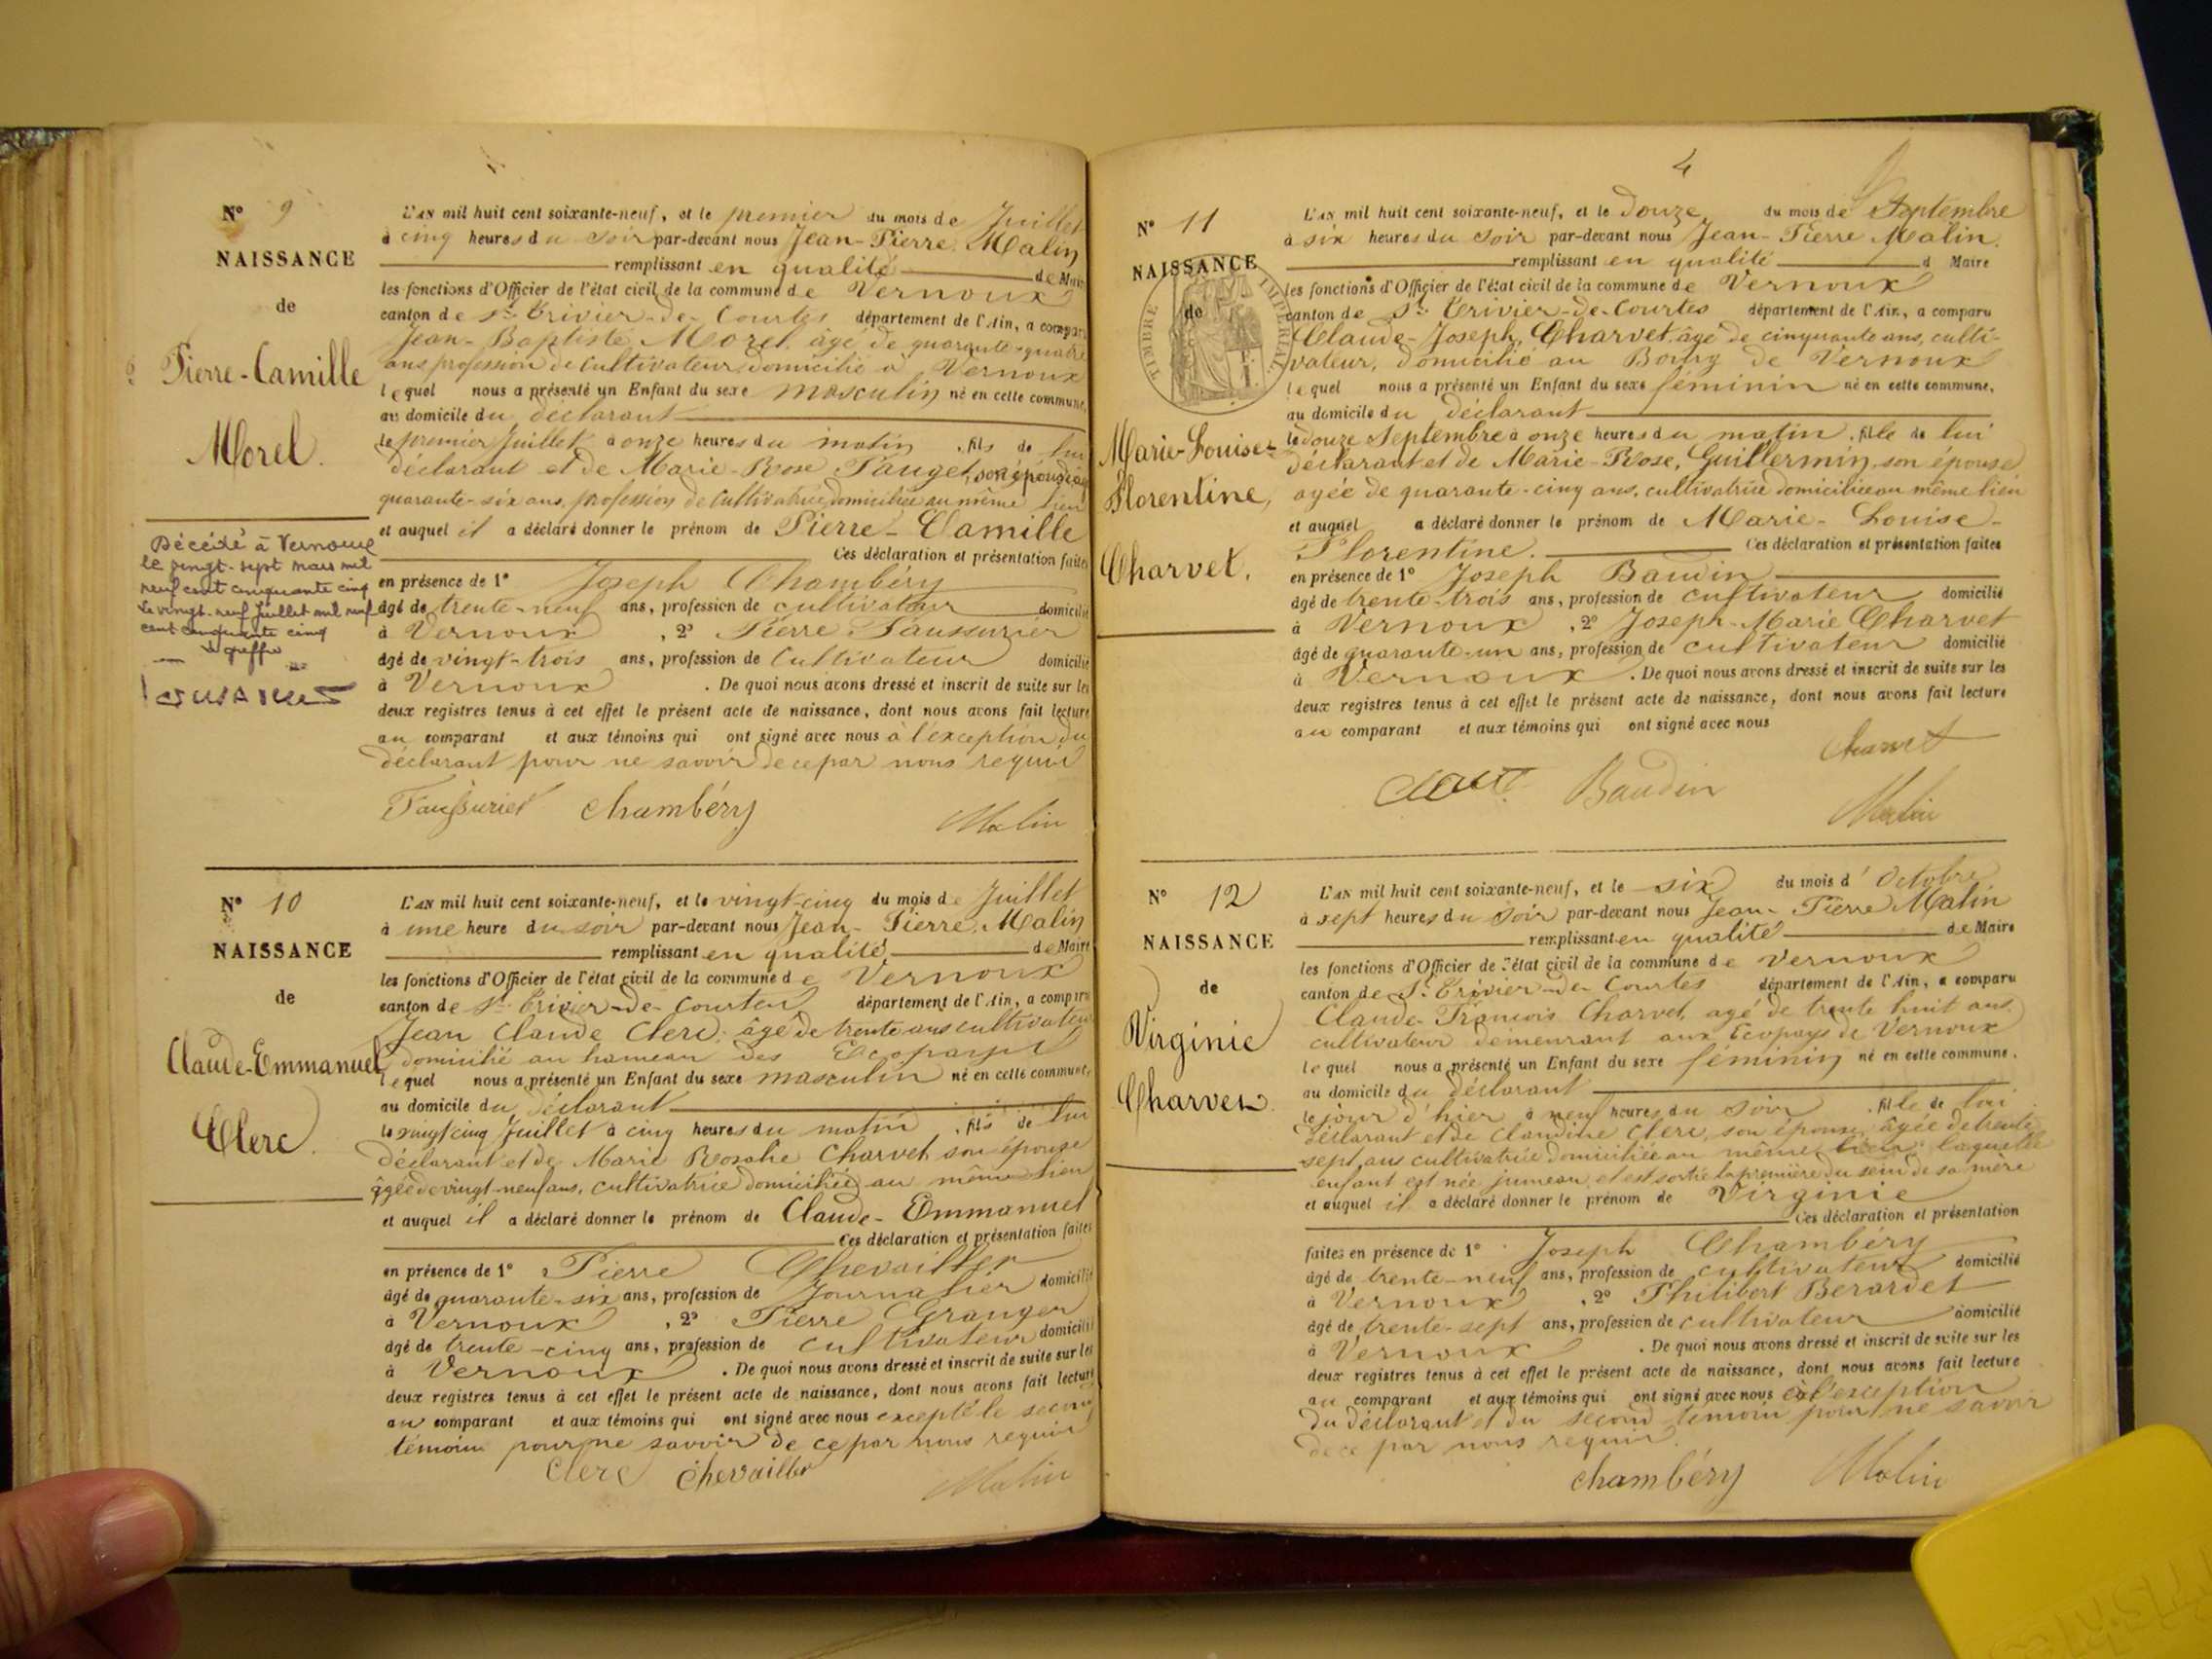 N° 9
NAISSANCE
de
Pierre-Camille
Morel.
Décédé à Vernoux
le vingt-sept mars mil
neuf cent cinquante cinq
Le vingt-neuf Juillet mil neuf
cent cinquante cinq
Le greffier
L'AN mil huit cent soixante-neuf, et le premier du mois de Juillet
à cinq heures du soir par-devant nous Jean-Pierre Malin
remplissant en qualité de Maire
les fonctions d'Officier de l'état civil de la commune de Vernoux
canton de St Trivier-de-Courtes département de l'Ain, a comparu
Jean-Baptiste Morel, âgé de quarante-quatre
ans profession de cultivateur domicilié à Vernoux
lequel nous a présenté un Enfant du sexe masculin né en cette commune,
au domicile du déclarant
le premier Juillet à onze heures du matin, fils de lui
déclarant et de Marie-Rose Pauget, son épouse âgée
quarante-six ans, profession de Cultivatrice, domiciliée au même lieu
et auquel il a déclaré donner le prénom de Pierre-Camille
Ces déclaration et présentation faites
en présence de 1° Joseph Chambéry
âgé de trente-neuf ans, profession de cultivateur domicilié
à Vernoux, 2° Pierre Faussurier
âgé de vingt-trois ans, profession de Cultivateur domicilié
à Vernoux. De quoi nous avons dressé et inscrit de suite sur les
deux registres tenus à cet effet le présent acte de naissance, dont nous avons fait lecture
au comparant et aux témoins qui ont signé avec nous à l'exception du
déclarant pour ne savoir de ce par nous requis
Faussurier Chambéry Malin
N° 10
NAISSANCE
de
Claude-Emmanuel
Clerc.
L'AN mil huit cent soixante-neuf, et le vingt-cinq du mois de Juillet
à une heure du soir par-devant nous Jean-Pierre Malin
remplissant en qualité de Maire
les fonctions d'Officier de l'état civil de la commune de Vernoux
canton de St Trivier-de-Courtes département de l'Ain, a comparu
Jean Claude Clerc, âgé de trente ans cultivateur
domicilié au hameau des Ecopays
lequel nous a présenté un Enfant du sexe masculin né en cette commune,
au domicile du déclarant
le vingt cinq Juillet à cinq heures du matin, fils de lui
déclarant et de Marie Rosalie Charvet son épouse
âgée de vingt-neuf ans, cultivatrice domiciliée au même lieu
et auquel il a déclaré donner le prénom de Claude-Emmanuel
Ces déclaration et présentation faites
en présence de 1° Pierre Chevailler
âgé de quarante-six ans, profession de Journalier domicilié
à Vernoux, 2° Pierre Granger
âgé de trente-cinq ans, profession de cultivateur domicilié
à Vernoux. De quoi nous avons dressé et inscrit de suite sur les
deux registres tenus à cet effet le présent acte de naissance, dont nous avons fait lecture
au comparant et aux témoins qui ont signé avec nous excepté le second
témoin pour ne savoir de ce par nous requis
Clerc Chevailler Malin
4
N° 11
NAISSANCE
de
TIMBRE IMPÉRIAL
Marie-Louise-
Florentine,
Charvet.
L'AN mil huit cent soixante-neuf, et le douze du mois de Septembre
à six heures du soir par-devant nous Jean-Pierre Malin.
remplissant en qualité d Maire
les fonctions d'Officier de l'état civil de la commune de Vernoux
canton de St Trivier-de-Courtes département de l'Ain, a comparu
Claude-Joseph, Charvet, âgé de cinquante ans, culti-
vateur, domicilié au Bourg de Vernoux
lequel nous a présenté un Enfant du sexe féminin né en cette commune,
au domicile du déclarant
le douze Septembre à onze heures du matin, fille de lui
déclarant et de Marie-Rose, Guillermin son épouse
agée de quarante-cinq ans, cultivatrice domiciliée au même lieu
et auquel a déclaré donner le prénom de Marie-Louise-
Florentine. Ces déclaration et présentation faites
en présence de 1° Joseph Baudin
âgé de trente-trois ans, profession de cultivateur domicilié
à Vernoux, 2° Joseph-Marie Charvet
âgé de quarante-un ans, profession de cultivateur domicilié
à Vernoux. De quoi nous avons dressé et inscrit de suite sur les
deux registres tenus à cet effet le présent acte de naissance, dont nous avons fait lecture
au comparant et aux témoins qui ont signé avec nous
Charvet
Baudin
Malin
N° 12
NAISSANCE
de
Virginie
Charvet
L'AN mil huit cent soixante-neuf, et le six du mois d'Octobre
à sept heures du soir par-devant nous Jean-Pierre Malin
remplissant en qualité de Maire
les fonctions d'Officier de l'état civil de la commune de Vernoux
canton de St Trivier-de-Courtes département de l'Ain, a comparu
Claude-François Charvet, agé de trente huit ans,
cultivateur demeurant aux Ecopays de Vernoux
lequel nous a présenté un Enfant du sexe féminin né en cette commune,
au domicile du déclarant
le jour d'hier à neuf heures du soir, fille de lui
déclarant et de Claudine Clerc, son épouse, âgée de trente
sept ans cultivatrice domiciliée au même lieu laquelle
enfant est née jumeau, et est sortie la première du sein de sa mère
et auquel il a déclaré donner le prénom de Virginie
Ces déclaration et présentation
faites en présence de 1° Joseph Chambéry
âgé de trente-neuf ans, profession de cultivateur domicilié
à Vernoux, 2° Philibert Berardet
âgé de trente-sept ans, profession de cultivateur domicilié
à Vernoux. De quoi nous avons dressé et inscrit de suite sur les
deux registres tenus à cet effet le présent acte de naissance, dont nous avons fait lecture
au comparant et aux témoins qui ont signé avec nous à l'exception
du déclarant et du second témoin pour ne savoir
de ce par nous requis.
Chambéry Malin